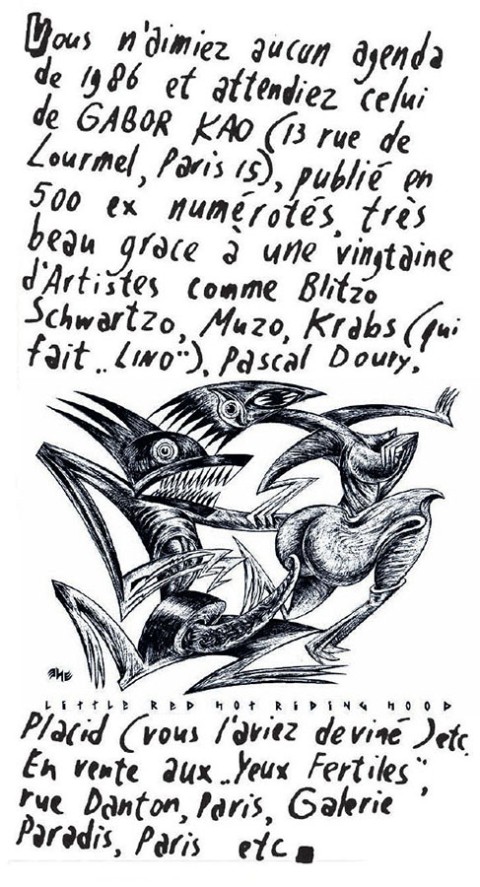 Vous n'aimiez aucun agenda
de 1986 et attendiez celui
de GABOR KAO (13 rue de
Lourmel, Paris 15), publié en
500 ex numérotés, très
beau grace à une vingtaine
d'Artistes comme Blitzo
Schwartzo, Muzo, Krabs (qui
fait „LINO"), Pascal Doury,
LITTLE RED HOT RIDING HOOD
Placid (vous l'aviez deviné) etc.
En vente aux „Yeux Fertiles",
rue Danton, Paris, Galerie
Paradis, Paris etc